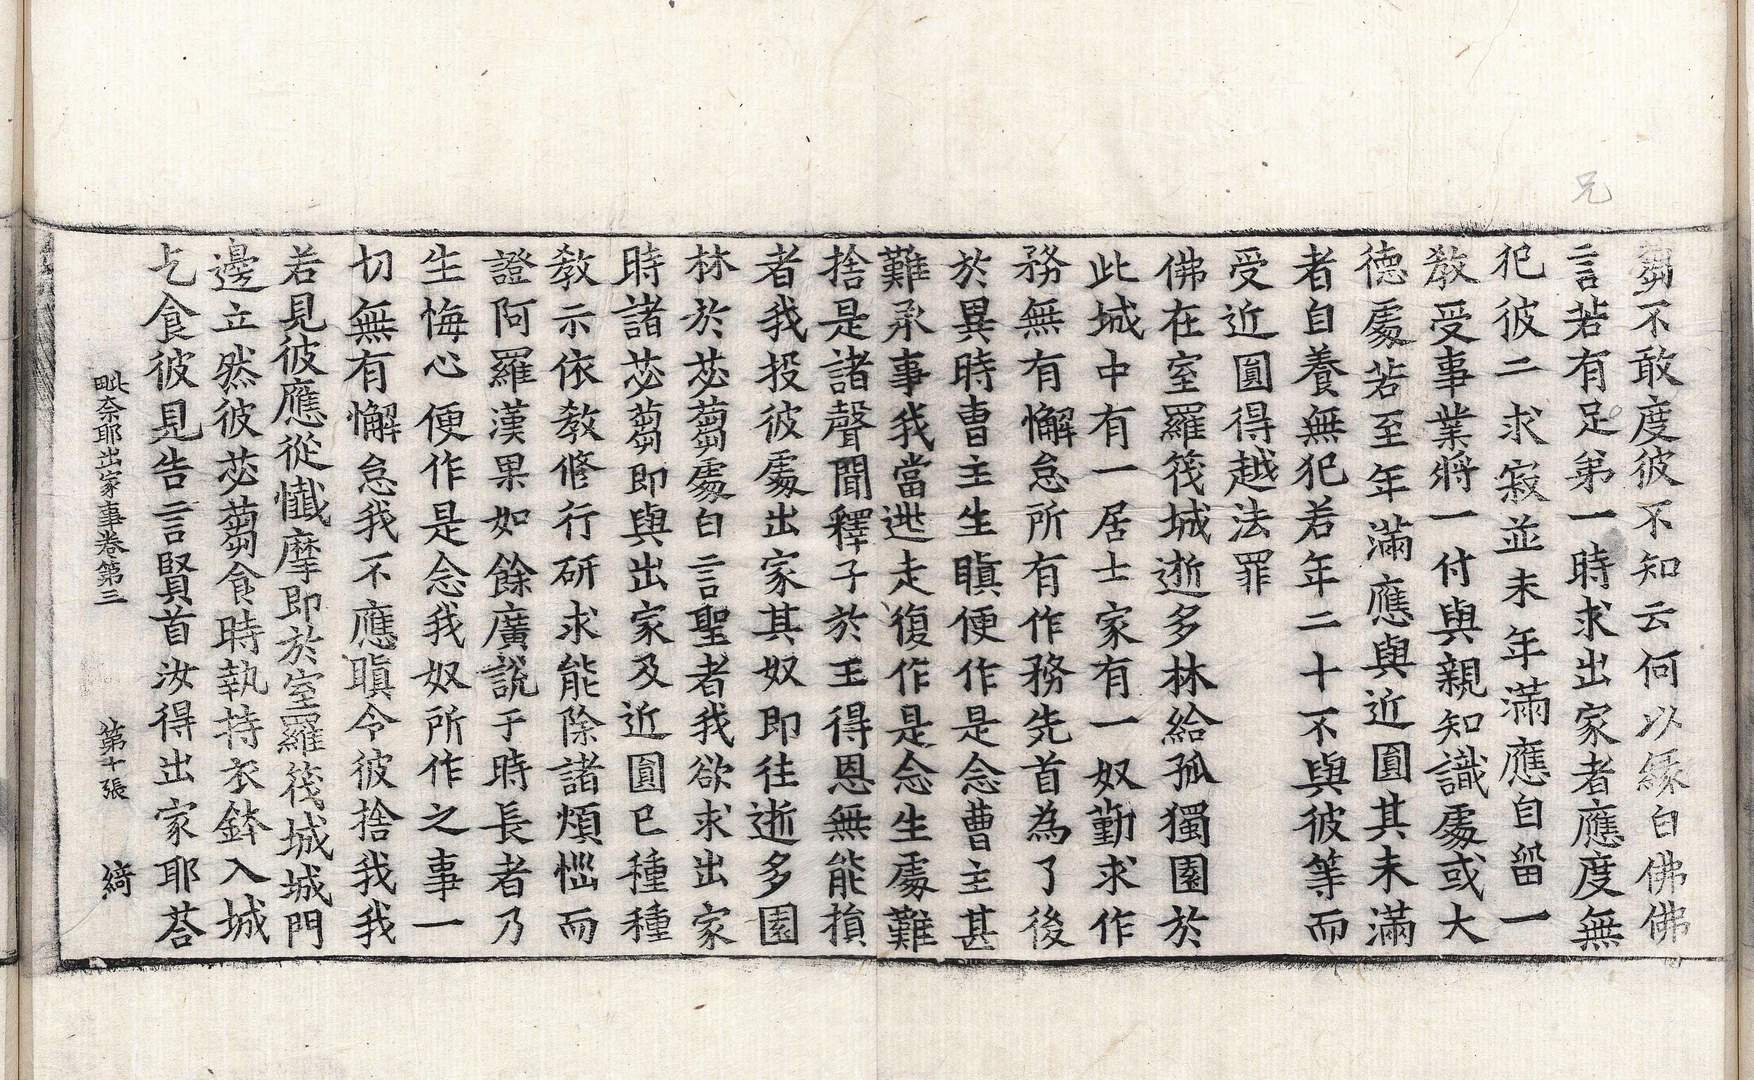 兄
芻不敢度彼不知云何以縁白佛佛
言若有足第一時求出家者應度無
犯彼二求寂並未年滿應自留一
教受事業將一付與親知識處或大
德處若至年滿應與近圓其未滿
者自養無犯若年二十不與彼等而
受近圓得越法罪
佛在室羅筏城逝多林給孤獨園於
此城中有一居士家有一奴勤求作
務無有懈怠所有作務先首為了後
於異時曹主生瞋便作是念曹主甚
難承事我當逃走復作是念生處難
捨是諸聲聞釋子於王得恩無能損
者我投彼處出家其奴即往逝多園
林於苾蒭處白言聖者我欲求出家
時諸苾蒭即與出家及近圓已種種
教示依教修行研求能除諸煩惱而
證阿羅漢果如餘廣說于時長者乃
生悔心便作是念我奴所作之事一
切無有懈怠我不應瞋令彼捨我我
若見彼應從懺摩即於室羅筏城城門
邊立然彼苾蒭食時執持衣鉢入城
乞食彼見告言賢首汝得出家耶荅
毗奈耶出家事卷第三 第十張 綺